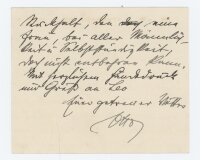 Rückhalt, den eine
Frau, bei aller Männlich-
keit u Selbstständigkeit,
doch nicht entbehren kann.
Mit herzlichem Händedruck
und Gruß an Leo
Euer getreuer
Otto